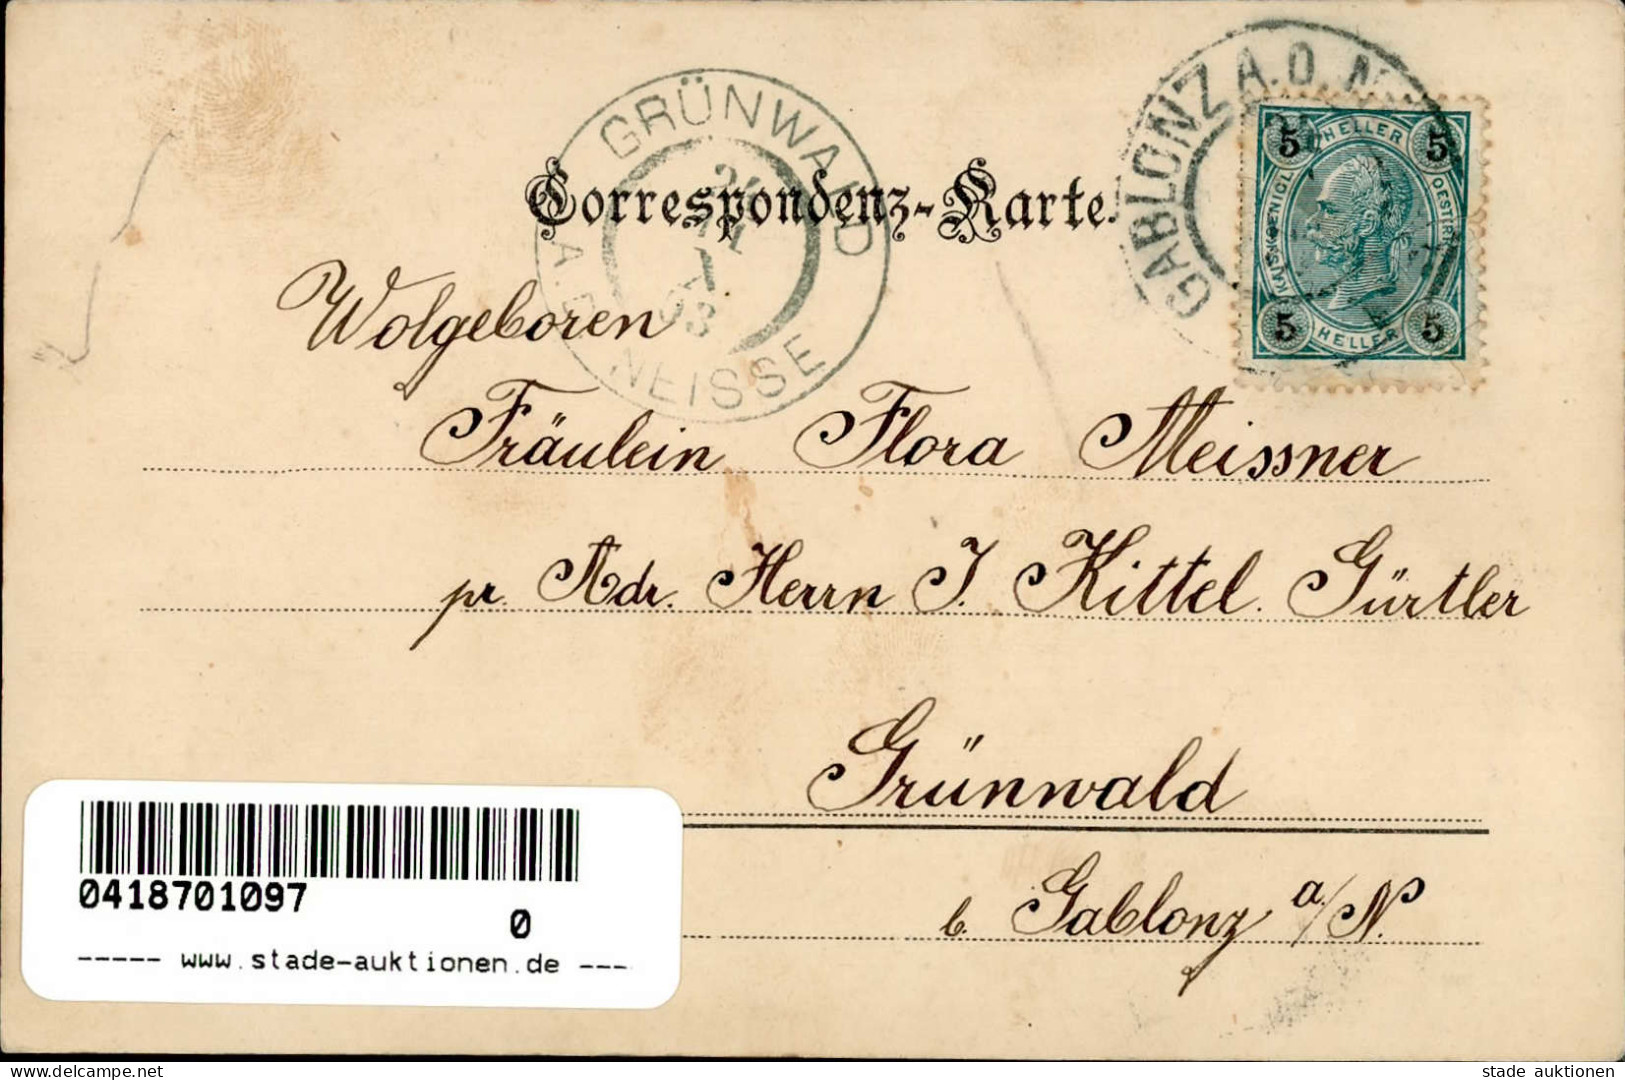 GABLONZ A.D.N.
GRÜNWALD
A.D. NEISSE
Correspondenz-Karte.
5 HELLER 5
KAIS. KOENIGL. OESTERR.
5 HELLER 5
Wolgeboren
Fräulein Flora Meissner
pr. Adr. Herrn J. Kittel. Gürtler
Grünwald
b. Gablonz a/N.
0418701097
0
----- www.stade-auktionen.de ---
stade auktionen